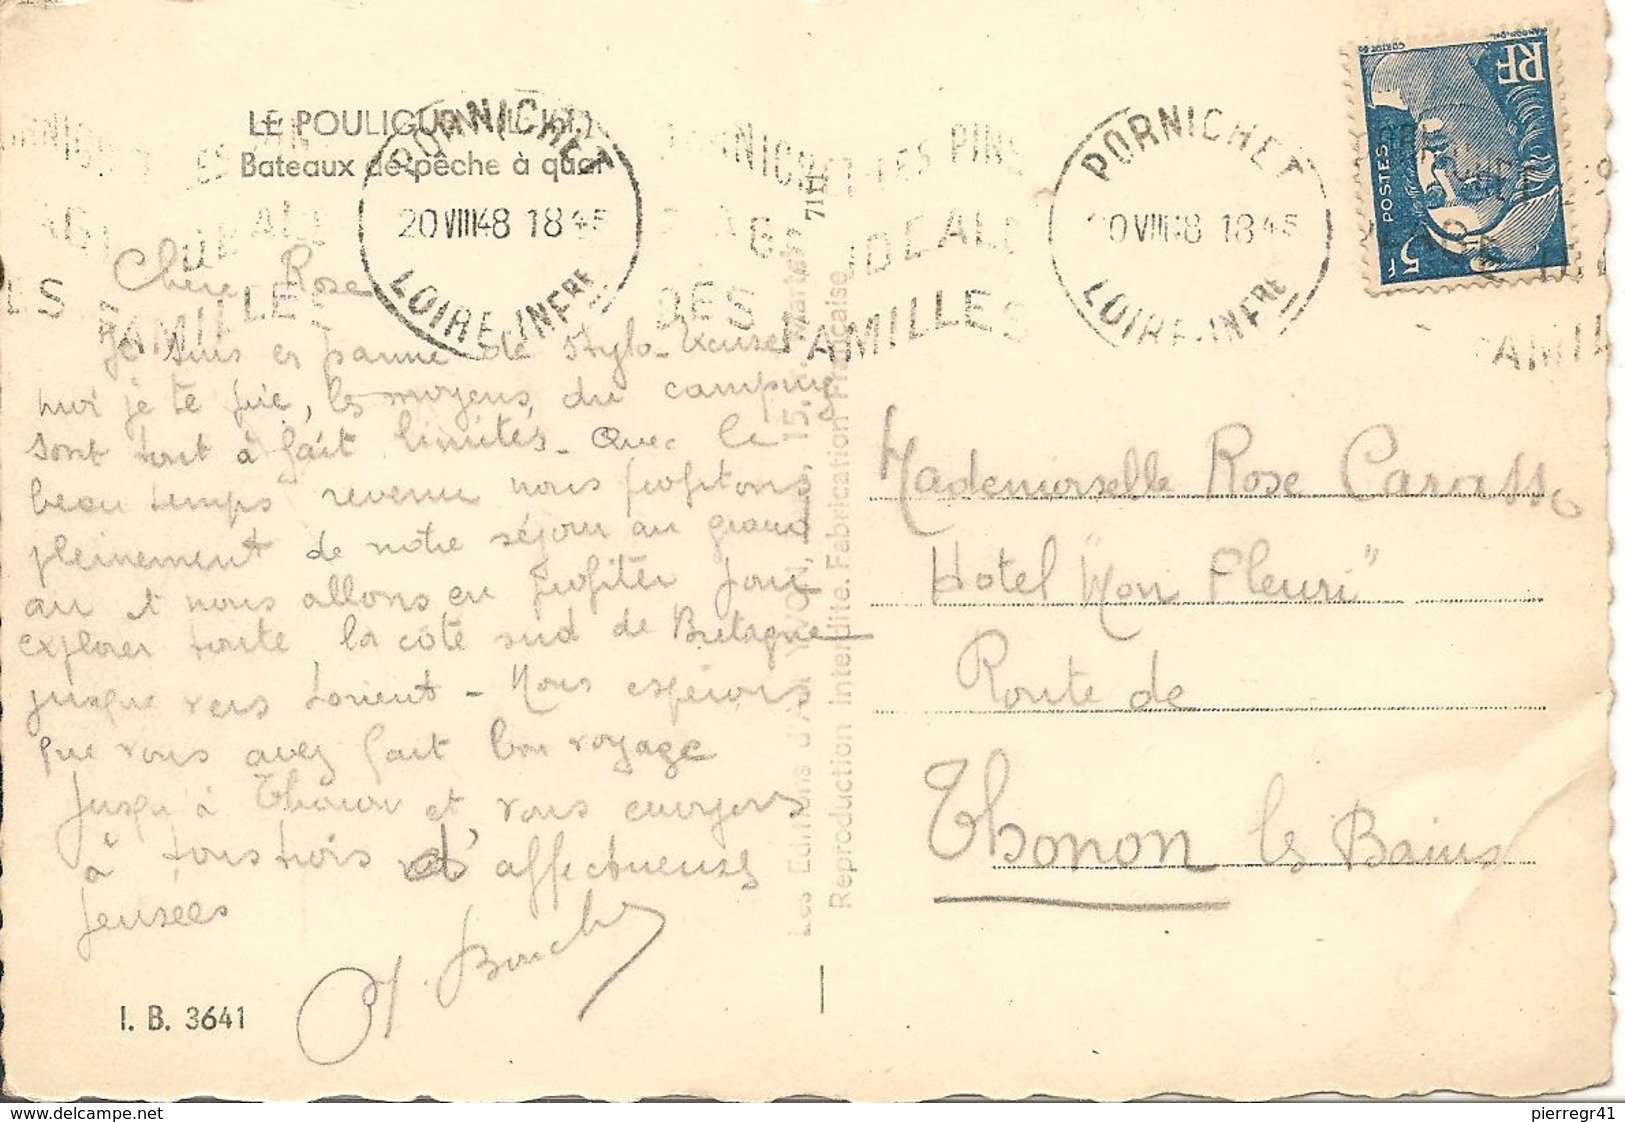 LE POULIGUEN (L.-Inf.)
Bateaux de pêche à quai
PORNICHET
20 VIII 48 18 45
LOIRE-INFRE
PORNICHET LES PINS
PLAGE IDEALE
DES FAMILLES
PORNICHET
20 VIII 48 18 45
LOIRE-INFRE
RF
POSTES
5F
Chère Rose
Je suis en panne de stylo. Excuse
moi je te prie, les moyens du camping
sont tout à fait limités. Avec le
beau temps revenu nous profitons
pleinement de notre séjour au grand
air et nous allons en profiter pour
explorer toute la côte sud de Bretagne
jusque vers Lorient - Nous espérons
que vous avez fait bon voyage
jusqu'à Thonon et vous envoyons
à tous trois d'affectueuses
pensées
Bouch
I. B. 3641
Les Editions d'Art YVON, 15, r. Martel, 7111
Reproduction interdite. Fabrication Française
Mademoiselle Rose
Hotel "Mon Fleuri"
Route de
Thonon les Bains
pierregr41